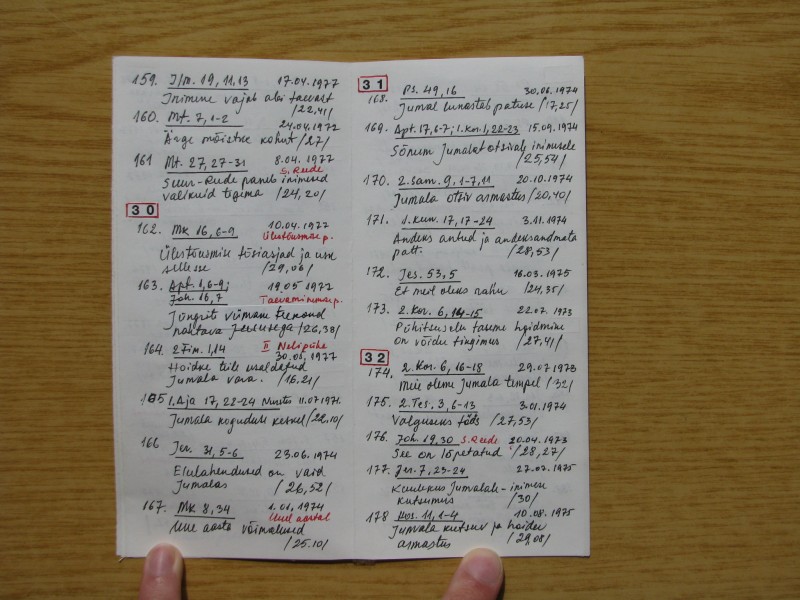 159. I/m. 19, 11, 13 17.04.1977
Inimene vajab abi taevast
/22,41/
160. Mt. 7, 1-2 24.04.1977
Ärge mõistke kohut /27/
161 Mt. 27, 27-31 8.04.1977
S. Reede
Suur-Reede paneb inimesed
valikuid tegema /24,20/
30
162. Mk 16, 6-9 10.04.1977
Ülestõusmise p.
Ülestõusmise tõsiasjad ja usu
sellesse /29,06/
163. Apt. 1, 6-9; 19.05.1977
Joh. 16, 7 Taevaminemise p.
Jüngrite viimane
nähtava Jeesusega /26,38/
164. 2 Tim. 1, 14 II Nelipüha
30.05.1977
Hoidke teile usaldatud
Jumala vara. /16,21/
165 1. Aja 17, 22-24 Mustu 11.07.1971.
Jumala koguduse keskel /22,10/
166 Jer. 31, 5-6 23.06.1974
Elulahendused on vaid
Jumalas /26,52/
167. Mk 8, 34 1.01.1974
Uuel aastal
Uue aasta võimalused
/25.10/
31
168. Ps. 49, 16 30.06.1974
Jumal lunastab patuse /17,25/
169. Apt. 17, 6-7; 1. Kor. 1, 22-23 15.09.1974
Sõnum Jumalat otsivale inimesele
/25,54/
170. 2. Sam. 9, 1-7, 11 20.10.1974
Jumala otsiv armastus /20,40/
171. 1. Kun. 17, 17-24 3.11.1974
Andeks antud ja andeksandmata
patt. /28,53/
172. Jes. 53, 5 16.03.1975
Et meil oleks rahu /24,35/
173. 2. Kor. 6, 14-15 22.07.1973
Pühitsusele taseme hoidmine
on võidu tingimus /27,41/
32
174. 2. Kor. 6, 16-18 29.07.1973
Meie oleme Jumala tempel /32/
175. 2. Tes. 3, 6-13 3.01.1974
Valguseks töös /27,53/
176. Joh. 19, 30 S. Reede 20.04.1973
See on lõpetatud /28,27/
177. Jer. 7, 23-24 27.07.1975
Kuulekus Jumalale - inimese
kutsumus /30/
178 Hos. 11, 1-4 10.08.1975
Jumala kutsuv ja hoidev
armastus /29,08/